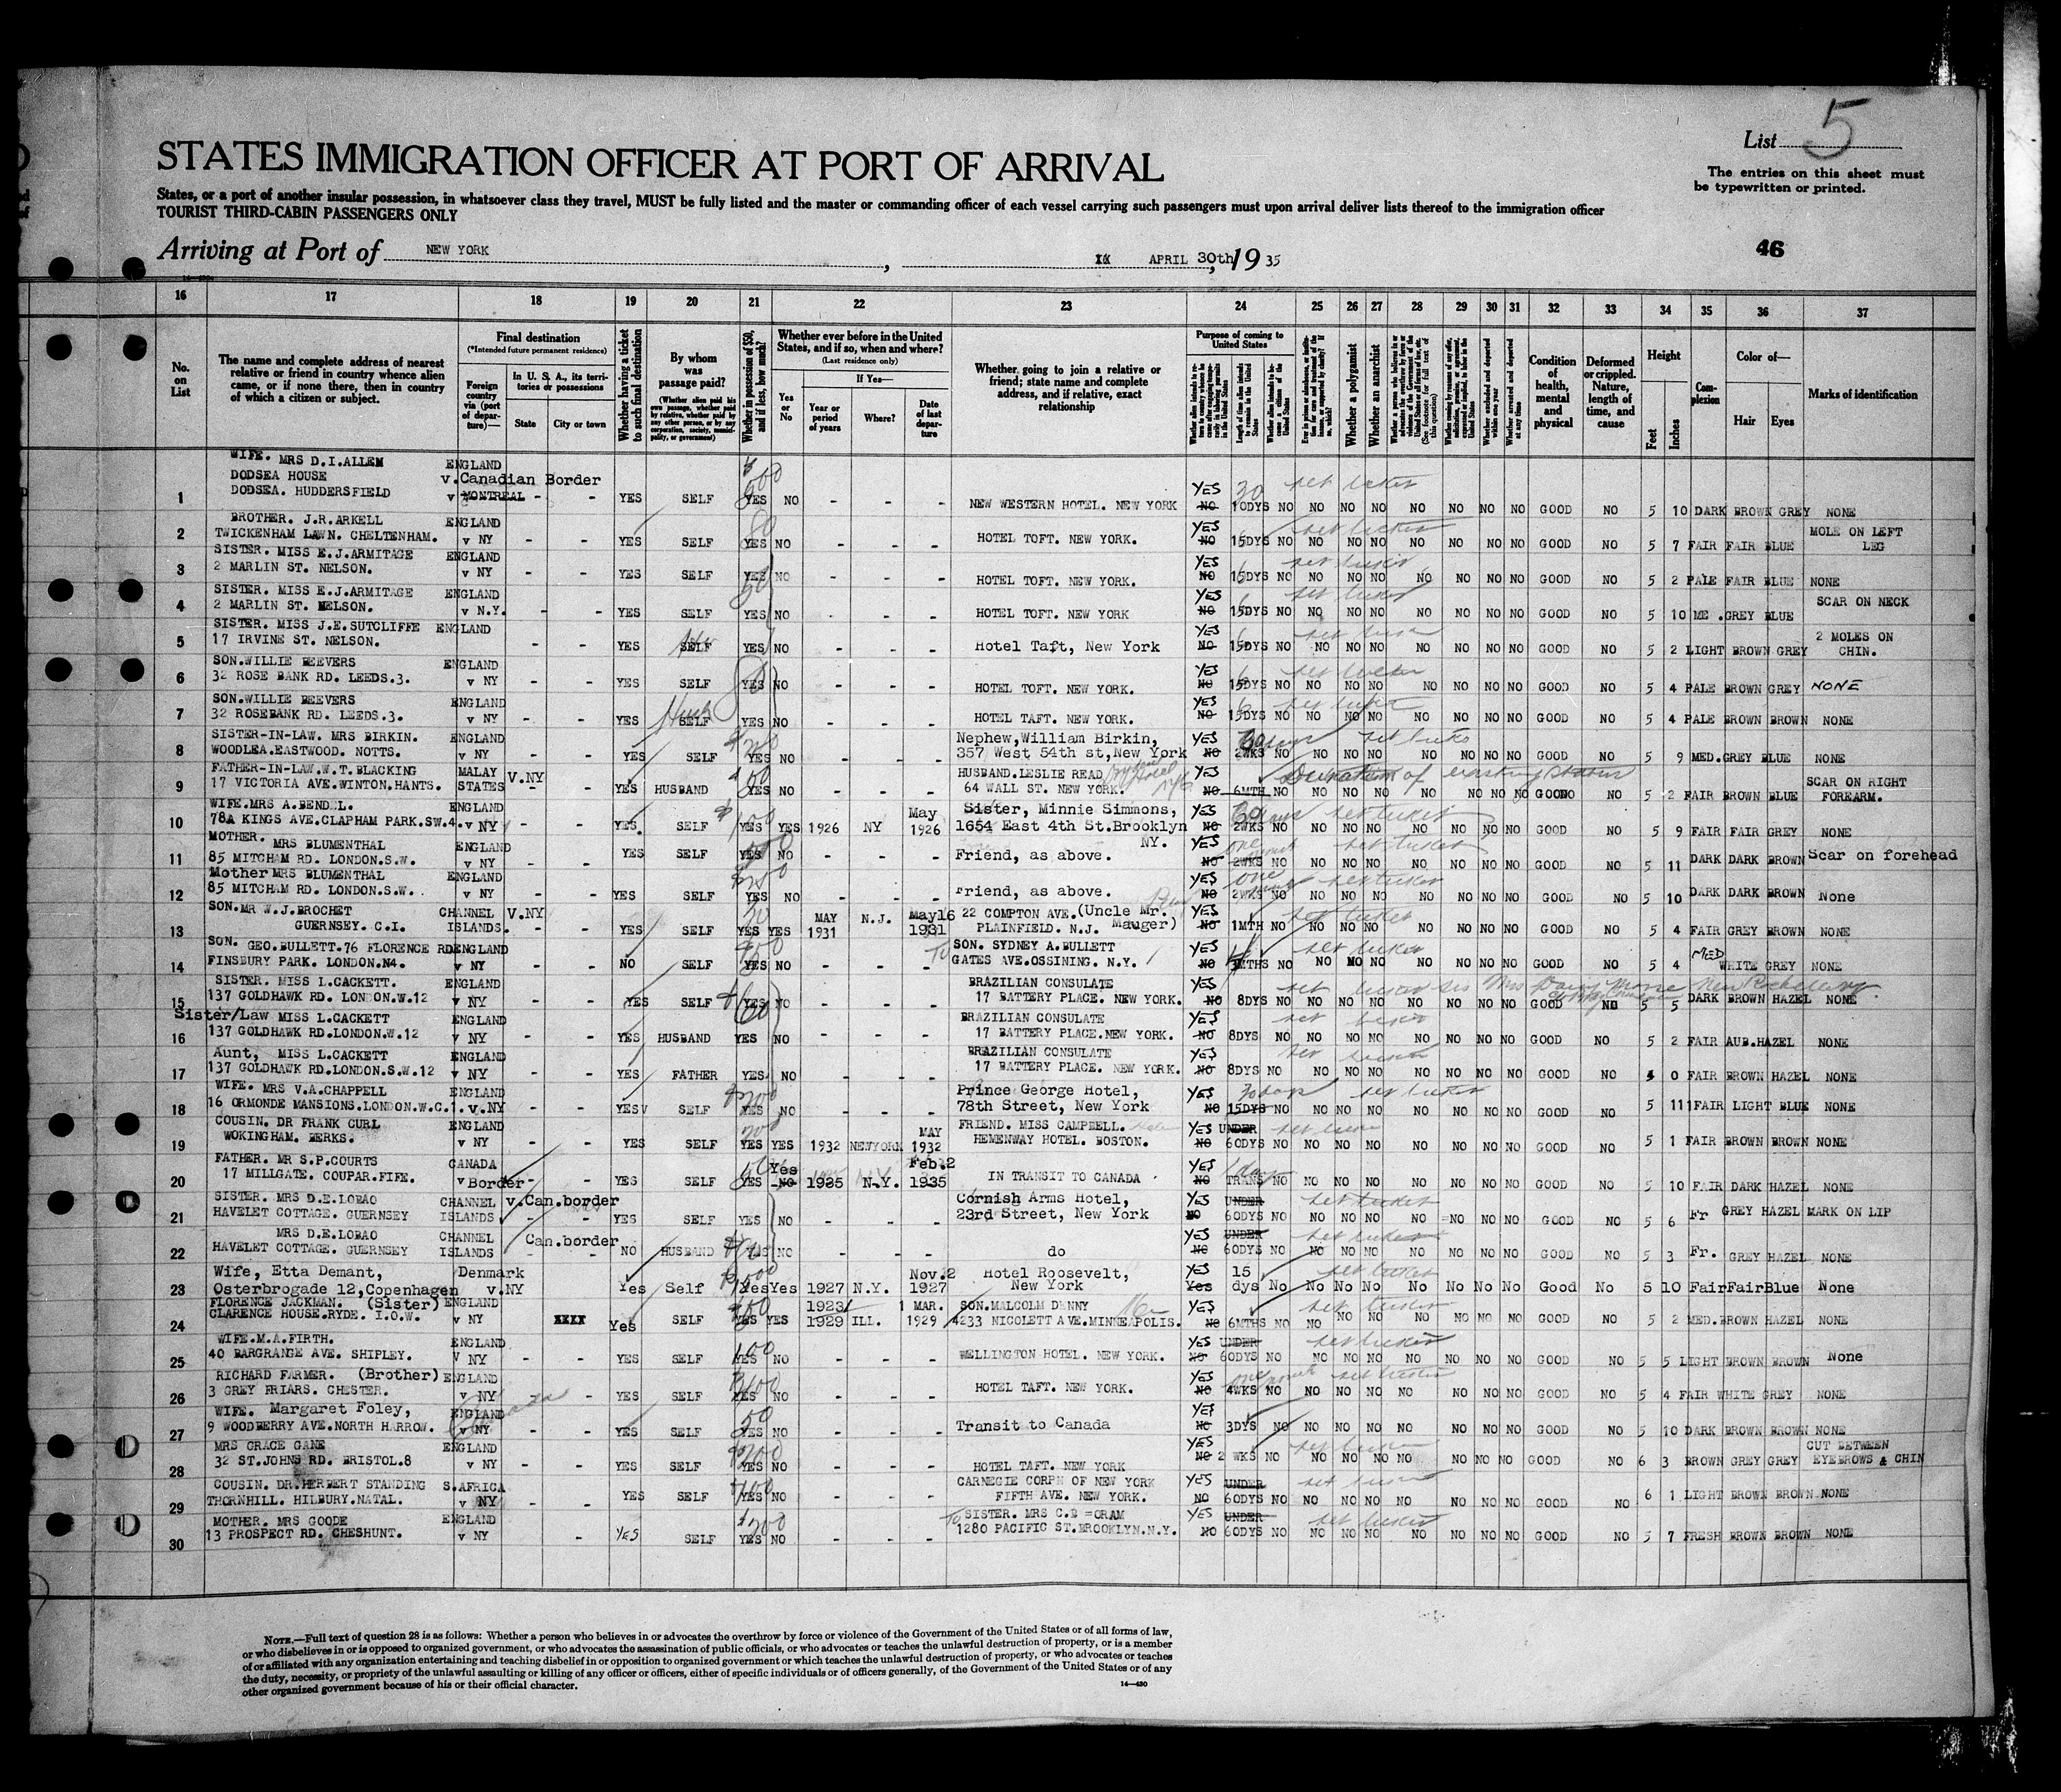 List 5
STATES IMMIGRATION OFFICER AT PORT OF ARRIVAL
The entries on this sheet must
be typewritten or printed.
States, or a port of another insular possession, in whatsoever class they travel, MUST be fully listed and the master or commanding officer of each vessel carrying such passengers must upon arrival deliver lists thereof to the immigration officer
TOURIST THIRD-CABIN PASSENGERS ONLY
46
Arriving at Port of NEW YORK, APRIL 30th, 19 35
16 17 18 19 20 21 22 23 24 25 26 27 28 29 30 31 32 33 34 35 36 37
No. on List
The name and complete address of nearest relative or friend in country whence alien came, or if none there, then in country of which a citizen or subject.
Final destination
(*Intended future permanent residence)
Foreign country via (port of departure)—
In U. S. A., its territories or possessions
State
City or town
Whether having a ticket to such final destination
By whom was passage paid?
(Whether alien paid his own passage, whether paid by relative, whether paid by any other person, or by any corporation, society, municipality, or government)
Whether in possession of $50, and if less, how much?
Whether ever before in the United States, and if so, when and where?
(Last residence only)
Yes or No
If Yes—
Year or period of years
Where?
Date of last departure
Whether going to join a relative or friend; state name and complete address, and if relative, exact relationship
Purpose of coming to United States
Whether a polygamist
Whether an anarchist
Condition of health, mental and physical
Deformed or crippled. Nature, length of time, and cause
Height
Feet
Inches
Complexion
Color of—
Hair
Eyes
Marks of identification
WIFE. MRS D.I.ALLEM ENGLAND
DODSEA HOUSE v.Canadian Border
1 DODSEA. HUDDERSFIELD v MONTREAL - - YES SELF YES NO - - - NEW WESTERN HOTEL. NEW YORK YES NO 10DYS NO NO NO NO NO NO NO NO GOOD NO 5 10 DARK BROWN GREY NONE
BROTHER. J.R.ARKELL ENGLAND
2 TWICKENHAM LAWN. CHELTENHAM. v NY - - YES SELF YES NO - - - HOTEL TOFT. NEW YORK. YES NO 15DYS NO NO NO NO NO NO NO NO GOOD NO 5 7 FAIR FAIR BLUE MOLE ON LEFT LEG
SISTER. MISS E.J.ARMITAGE ENGLAND
3 2 MARLIN ST. NELSON. v NY - - YES SELF YES NO - - - HOTEL TOFT. NEW YORK. YES NO 15DYS NO NO NO NO NO NO NO NO GOOD NO 5 2 PALE FAIR BLUE NONE
SISTER. MISS E.J.ARMITAGE ENGLAND
4 2 MARLIN ST. NELSON. v N.Y. - - YES SELF YES NO - - - HOTEL TOFT. NEW YORK YES NO 15DYS NO NO NO NO NO NO NO NO GOOD NO 5 10 ME .GREY BLUE SCAR ON NECK
SISTER. MISS J.E.SUTCLIFFE ENGLAND
5 17 IRVINE ST. NELSON. - - YES SELF YES NO - - - Hotel Taft, New York YES NO 15DYS NO NO NO NO NO NO NO NO GOOD NO 5 2 LIGHT BROWN GREY 2 MOLES ON CHIN.
SON.WILLIE BEEVERS ENGLAND
6 32 ROSE BANK RD. LEEDS.3. v NY - - YES SELF YES NO - - - HOTEL TOFT. NEW YORK. YES NO 15DYS NO NO NO NO NO NO NO NO GOOD NO 5 4 PALE BROWN GREY NONE
SON.WILLIE BEEVERS ENGLAND
7 32 ROSEBANK RD. LEEDS.3. v NY - - YES SELF YES NO - - - HOTEL TAFT. NEW YORK. YES NO 15DYS NO NO NO NO NO NO NO NO GOOD NO 5 4 PALE BROWN BROWN NONE
SISTER-IN-LAW. MRS BIRKIN. ENGLAND Nephew,William Birkin,
8 WOODLEA.EASTWOOD. NOTTS. v NY - - YES SELF YES NO - - - 357 West 54th st,New York YES NO 2WKS NO NO NO NO NO NO NO NO GOOD NO 5 9 MED.GREY BLUE NONE
FATHER-IN-LAW.W.T.BLACKING MALAY V.NY HUSBAND.LESLIE READ Duration of existing status
9 17 VICTORIA AVE.WINTON.HANTS. STATES - - YES HUSBAND YES NO - - - 64 WALL ST. NEW YORK. YES NO 6MTH NO NO NO NO NO NO NO NO GOOD NO 5 2 FAIR BROWN BLUE SCAR ON RIGHT FOREARM.
WIFE.MRS A.BENDEL. ENGLAND May Sister, Minnie Simmons,
10 78A KINGS AVE.CLAPHAM PARK.SW.4. v NY - - YES. SELF YES YES 1926 NY 1926 1654 East 4th St.Brooklyn NY. YES NO 2WKS NO NO NO NO NO NO NO NO GOOD NO 5 9 FAIR FAIR GREY NONE
MOTHER. MRS BLUMENTHAL ENGLAND
11 85 MITCHAM RD. LONDON.S.W. v NY - - YES SELF YES NO - - - Friend, as above. YES NO 2WKS NO NO NO NO NO NO NO NO GOOD NO 5 11 DARK DARK BROWN Scar on forehead
Mother MRS BLUMENTHAL ENGLAND
12 85 MITCHAM RD. LONDON.S.W. v NY - - YES SELF YES NO - - - Friend, as above. YES NO 2WKS NO NO NO NO NO NO NO NO GOOD NO 5 10 DARK DARK BROWN None
SON.MR W.J.BROCHET CHANNEL V.NY MAY N.J. May16 22 COMPTON AVE.(Uncle Mr.
13 GUERNSEY. C.I. ISLANDS. - - YES SELF YES YES 1931 1931 PLAINFIELD. N.J. Mauger) YES NO 1MTH NO NO NO NO NO NO NO NO GOOD NO 5 4 FAIR GREY BROWN NONE
SON. GEO.BULLETT.76 FLORENCE RD ENGLAND To SON. SYDNEY A.BULLETT
14 FINSBURY PARK. LONDON.N4. v NY - - NO SELF YES NO - - - GATES AVE.OSSINING. N.Y. YES NO MTHS NO NO NO NO NO NO NO NO GOOD NO 5 4 MED WHITE GREY NONE
SISTER. MISS L.CACKETT. ENGLAND BRAZILIAN CONSULATE
15 137 GOLDHAWK RD. LONDON.W.12 v NY - - YES SELF YES NO - - - 17 BATTERY PLACE. NEW YORK. YES NO 8DYS NO NO NO NO NO NO NO NO GOOD NO 5 5 DARK BROWN HAZEL NONE
Sister/Law MISS L.CACKETT ENGLAND BRAZILIAN CONSULATE
16 137 GOLDHAWK RD.LONDON.W.12 v NY - - YES HUSBAND YES NO - - - 17 BATTERY PLACE.NEW YORK. YES NO 8DYS NO NO NO NO NO NO NO NO GOOD NO 5 2 FAIR AUB.HAZEL NONE
Aunt, MISS L.CACKETT ENGLAND BRAZILIAN CONSULATE
17 137 GOLDHAWK RD.LONDON.S.W.12 v NY - - YES FATHER YES NO - - - 17 BATTERY PLACE. NEW YORK. YES NO 8DYS NO NO NO NO NO NO NO NO GOOD NO 4 0 FAIR BROWN HAZEL NONE
WIFE. MRS V.A.CHAPPELL ENGLAND Prince George Hotel, 30 days
18 16 ORMONDE MANSIONS.LONDON.W.C.1. v.NY - - YES SELF YES NO - - - 78th Street, New York YES NO 15DYS NO NO NO NO NO NO NO NO GOOD NO 5 11 FAIR LIGHT BLUE NONE
COUSIN. DR FRANK CURL ENGLAND MAY FRIEND. MISS CAMPBELL. YES UNDER
19 WOKINGHAM. BERKS. v NY - - YES SELF YES YES 1932 NEWYORK 1932 HEMENWAY HOTEL. BOSTON. NO 60DYS NO NO NO NO NO NO NO NO GOOD NO 5 1 FAIR BROWN BROWN NONE
FATHER. MR S.P.COURTS CANADA Yes Feb.2
20 17 MILLGATE. COUPAR.FIFE. v Border - - YES SELF YES NO 1935 N.Y. 1935 IN TRANSIT TO CANADA YES NO TRANS NO NO NO NO NO NO NO NO GOOD NO 5 10 FAIR DARK HAZEL NONE
SISTER. MRS D.E.LOBAO CHANNEL v.Can.border Cornish Arms Hotel, YES UNDER
21 HAVELET COTTAGE. GUERNSEY ISLANDS - - YES SELF YES NO - - - 23rd Street, New York NO 60DYS NO NO NO NO NO NO NO NO GOOD NO 5 6 Fr GREY HAZEL MARK ON LIP
MRS D.E.LOBAO CHANNEL Can.border YES UNDER
22 HAVELET COTTAGE. GUERNSEY ISLANDS - - NO HUSBAND YES NO - - - do NO 60DYS NO NO NO NO NO NO NO NO GOOD NO 5 3 Fr. GREY HAZEL NONE
Wife, Etta Demant, Denmark Nov.2 Hotel Roosevelt, YES 15
23 Osterbrogade 12,Copenhagen v.NY Yes Self Yes Yes 1927 N.Y. 1927 New York Yes dys No No No No No No No No Good No 5 10 Fair Fair Blue None
FLORENCE JACKMAN. (Sister) ENGLAND 1923 1 MAR. SON.MALCOLM DENNY
24 CLARENCE HOUSE.RYDE. I.O.W. v NY XXXX Yes SELF YES YES 1929 ILL. 1929 4233 NICOLETT AVE.MINNEAPOLIS. YES NO 6MTHS NO NO NO NO NO NO NO GOOD NO 5 2 MED.BROWN HAZEL NONE
WIFE.M.A.FIRTH. ENGLAND YES UNDER
25 40 BARGRANGE AVE. SHIPLEY. V NY - - YES SELF YES NO - - - WELLINGTON HOTEL. NEW YORK. NO 60DYS NO NO NO NO NO NO NO NO GOOD NO 5 5 LIGHT BROWN BROWN None
RICHARD FARMER. (Brother) ENGLAND
26 3 GREY FRIARS. CHESTER. v NY - - YES SELF YES NO - - - HOTEL TAFT. NEW YORK. YES NO 4WKS NO NO NO NO NO NO NO NO GOOD NO 5 4 FAIR WHITE GREY NONE
WIFE. Margaret Foley, ENGLAND Canada
27 9 WOODBERRY AVE.NORTH HARROW. v NY - - YES SELF YES NO - - - Transit to Canada YES NO 3DYS NO NO NO NO NO NO NO NO GOOD NO 5 10 DARK BROWN BROWN NONE
MRS GRACE GANE ENGLAND
28 32 ST.JOHNS RD. BRISTOL.8 v NY - - YES SELF YES NO - - - HOTEL TAFT. NEW YORK YES NO 2 WKS NO NO NO NO NO NO NO NO GOOD NO 6 3 BROWN GREY GREY CUT BETWEEN EYEBROWS & CHIN
COUSIN. DR.HERBERT STANDING S.AFRICA CARNEGIE CORPN OF NEW YORK YES UNDER
29 THORNHILL. HILBURY.NATAL. v NY - - YES SELF YES NO - - - FIFTH AVE. NEW YORK. NO 60DYS NO NO NO NO NO NO NO NO GOOD NO 6 1 LIGHT BROWN BROWN NONE
MOTHER. MRS GOODE ENGLAND To SISTER. MRS C.E =ORAM YES UNDER
30 13 PROSPECT RD. CHESHUNT. v NY - YES SELF YES NO - - - 1280 PACIFIC ST.BROOKLYN.N.Y. NO 60DYS NO NO NO NO NO NO NO NO GOOD NO 5 7 FRESH BROWN BROWN NONE
NOTE.—Full text of question 28 is as follows: Whether a person who believes in or advocates the overthrow by force or violence of the Government of the United States or of all forms of law,
or who disbelieves in or is opposed to organized government, or who advocates the assassination of public officials, or who advocates or teaches the unlawful destruction of property, or is a member
of or affiliated with any organization entertaining and teaching disbelief in or opposition to organized government or which teaches the unlawful destruction of property, or who advocates or teaches
the duty, necessity, or propriety of the unlawful assaulting or killing of any officer or officers, either of specific individuals or of officers generally, of the Government of the United States or of any
other organized government because of his or their official character.
14—430